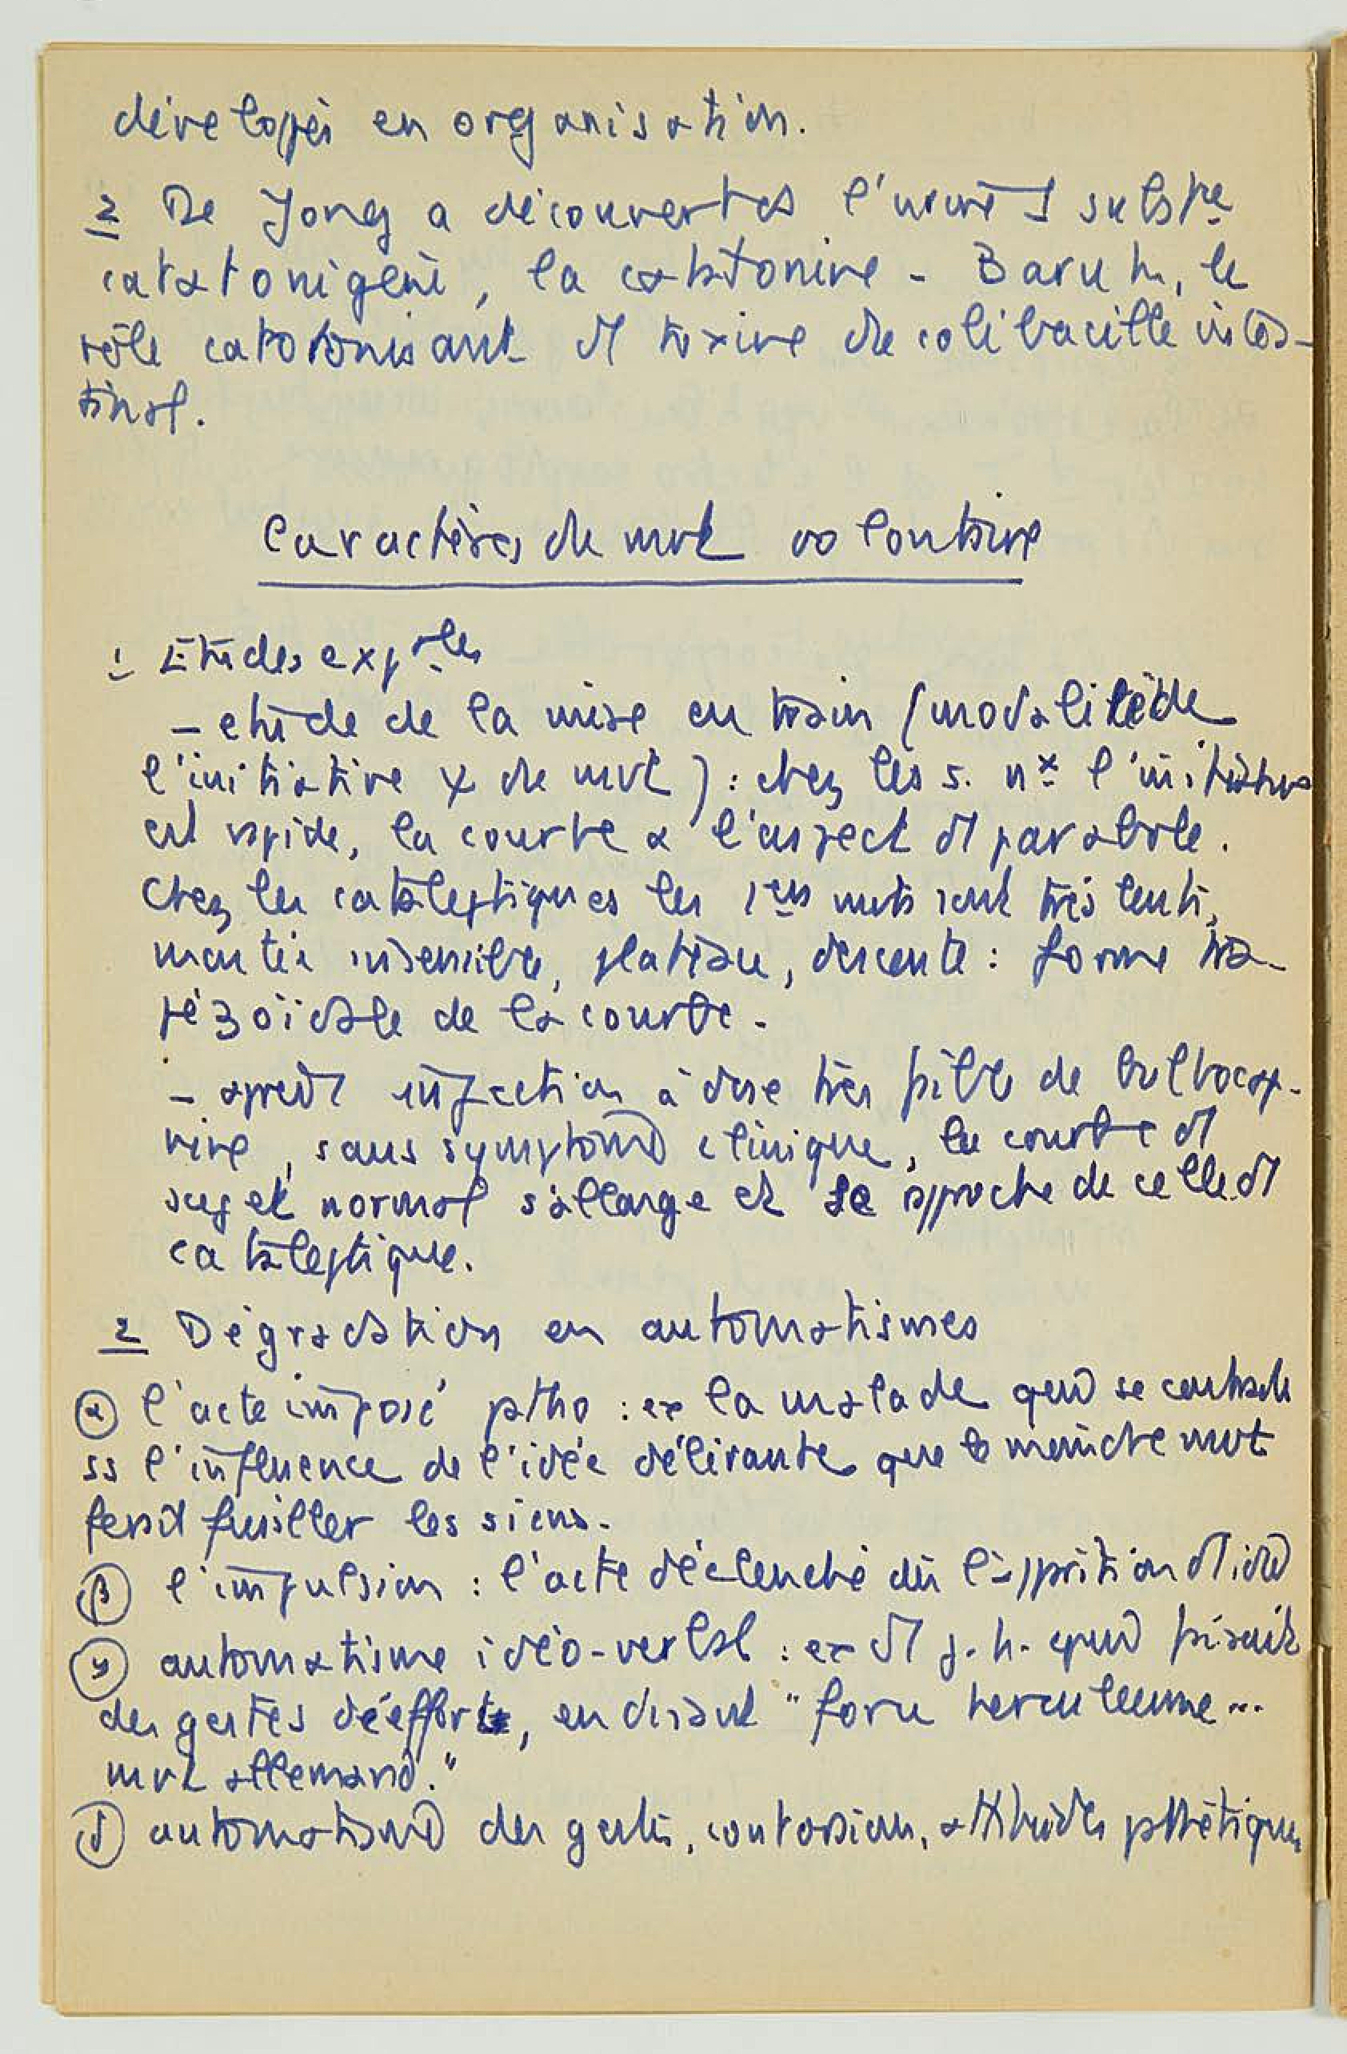 développés en organisation.
2 De Jong a découvert ds l'urine 1 subst^ce
catatonigène, la catatonine - Baruk, le
rôle catatonisant d1 toxine du colibacille intes-
tinal.
Caractères du mvt volontaire
1 Etudes exp^ales
- etude de la mise en train (modalité de
l'initiative du mvt) : chez les s. n^x l'initiative
est rapide, la courbe a l'aspect d1 parabole.
Chez les cataleptiques les 1ers mvts sont très lents,
montée insensible, plateau, descente : forme tra-
pézoïdale de la courbe.
- après 1 injection à dose très faible de bulbocap-
nine, sans symptome clinique, la courbe d1
sujet normal s'allonge et se approche de celle d1
cataleptique.
2 Dégradation en automatismes
α l'acte imposé patho : ex la malade qui se contracte
ss l'influence de l'idée délirante que le moindre mvt
ferait fusiller les siens.
β l'impulsion : l'acte déclenché dès l'apparition d1 idée
γ automatisme idéo-verbal : ex d1 j. h. qui faisait
des gestes d'efforts, en disant "force herculéenne...
mvt allemand."
δ automatisme des gestes, contorsions, attitudes pathétiques